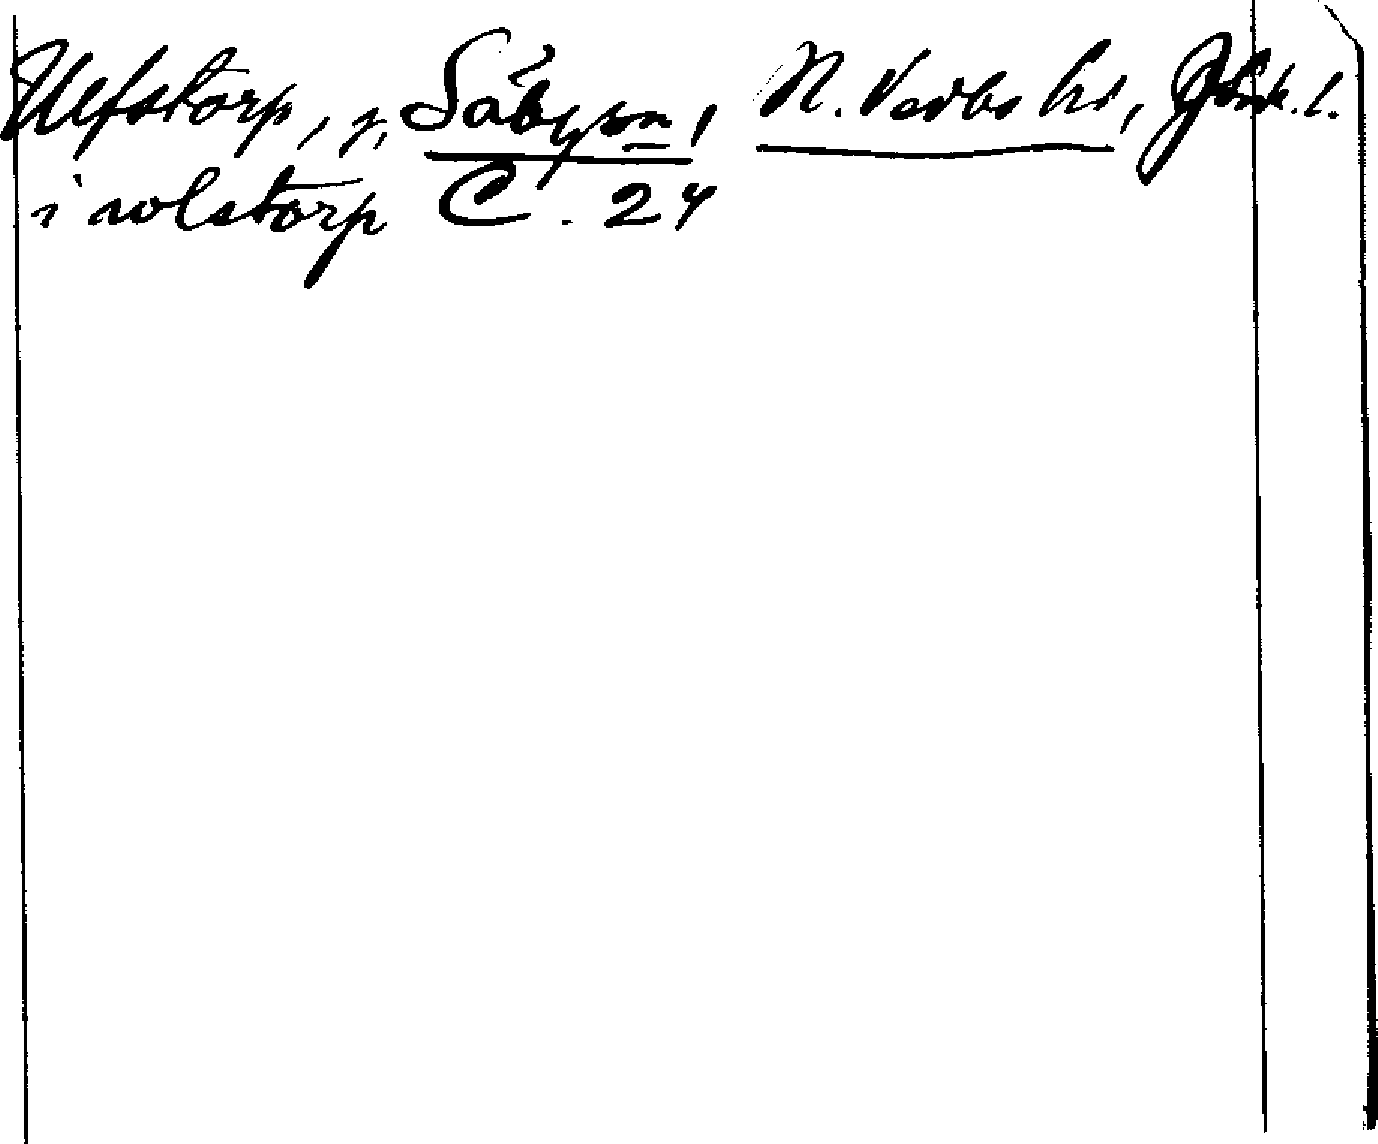 Ulfstorp, g, Säby sn, N. Vedbo hd, Jönk. l.
i wlstorp C. 24